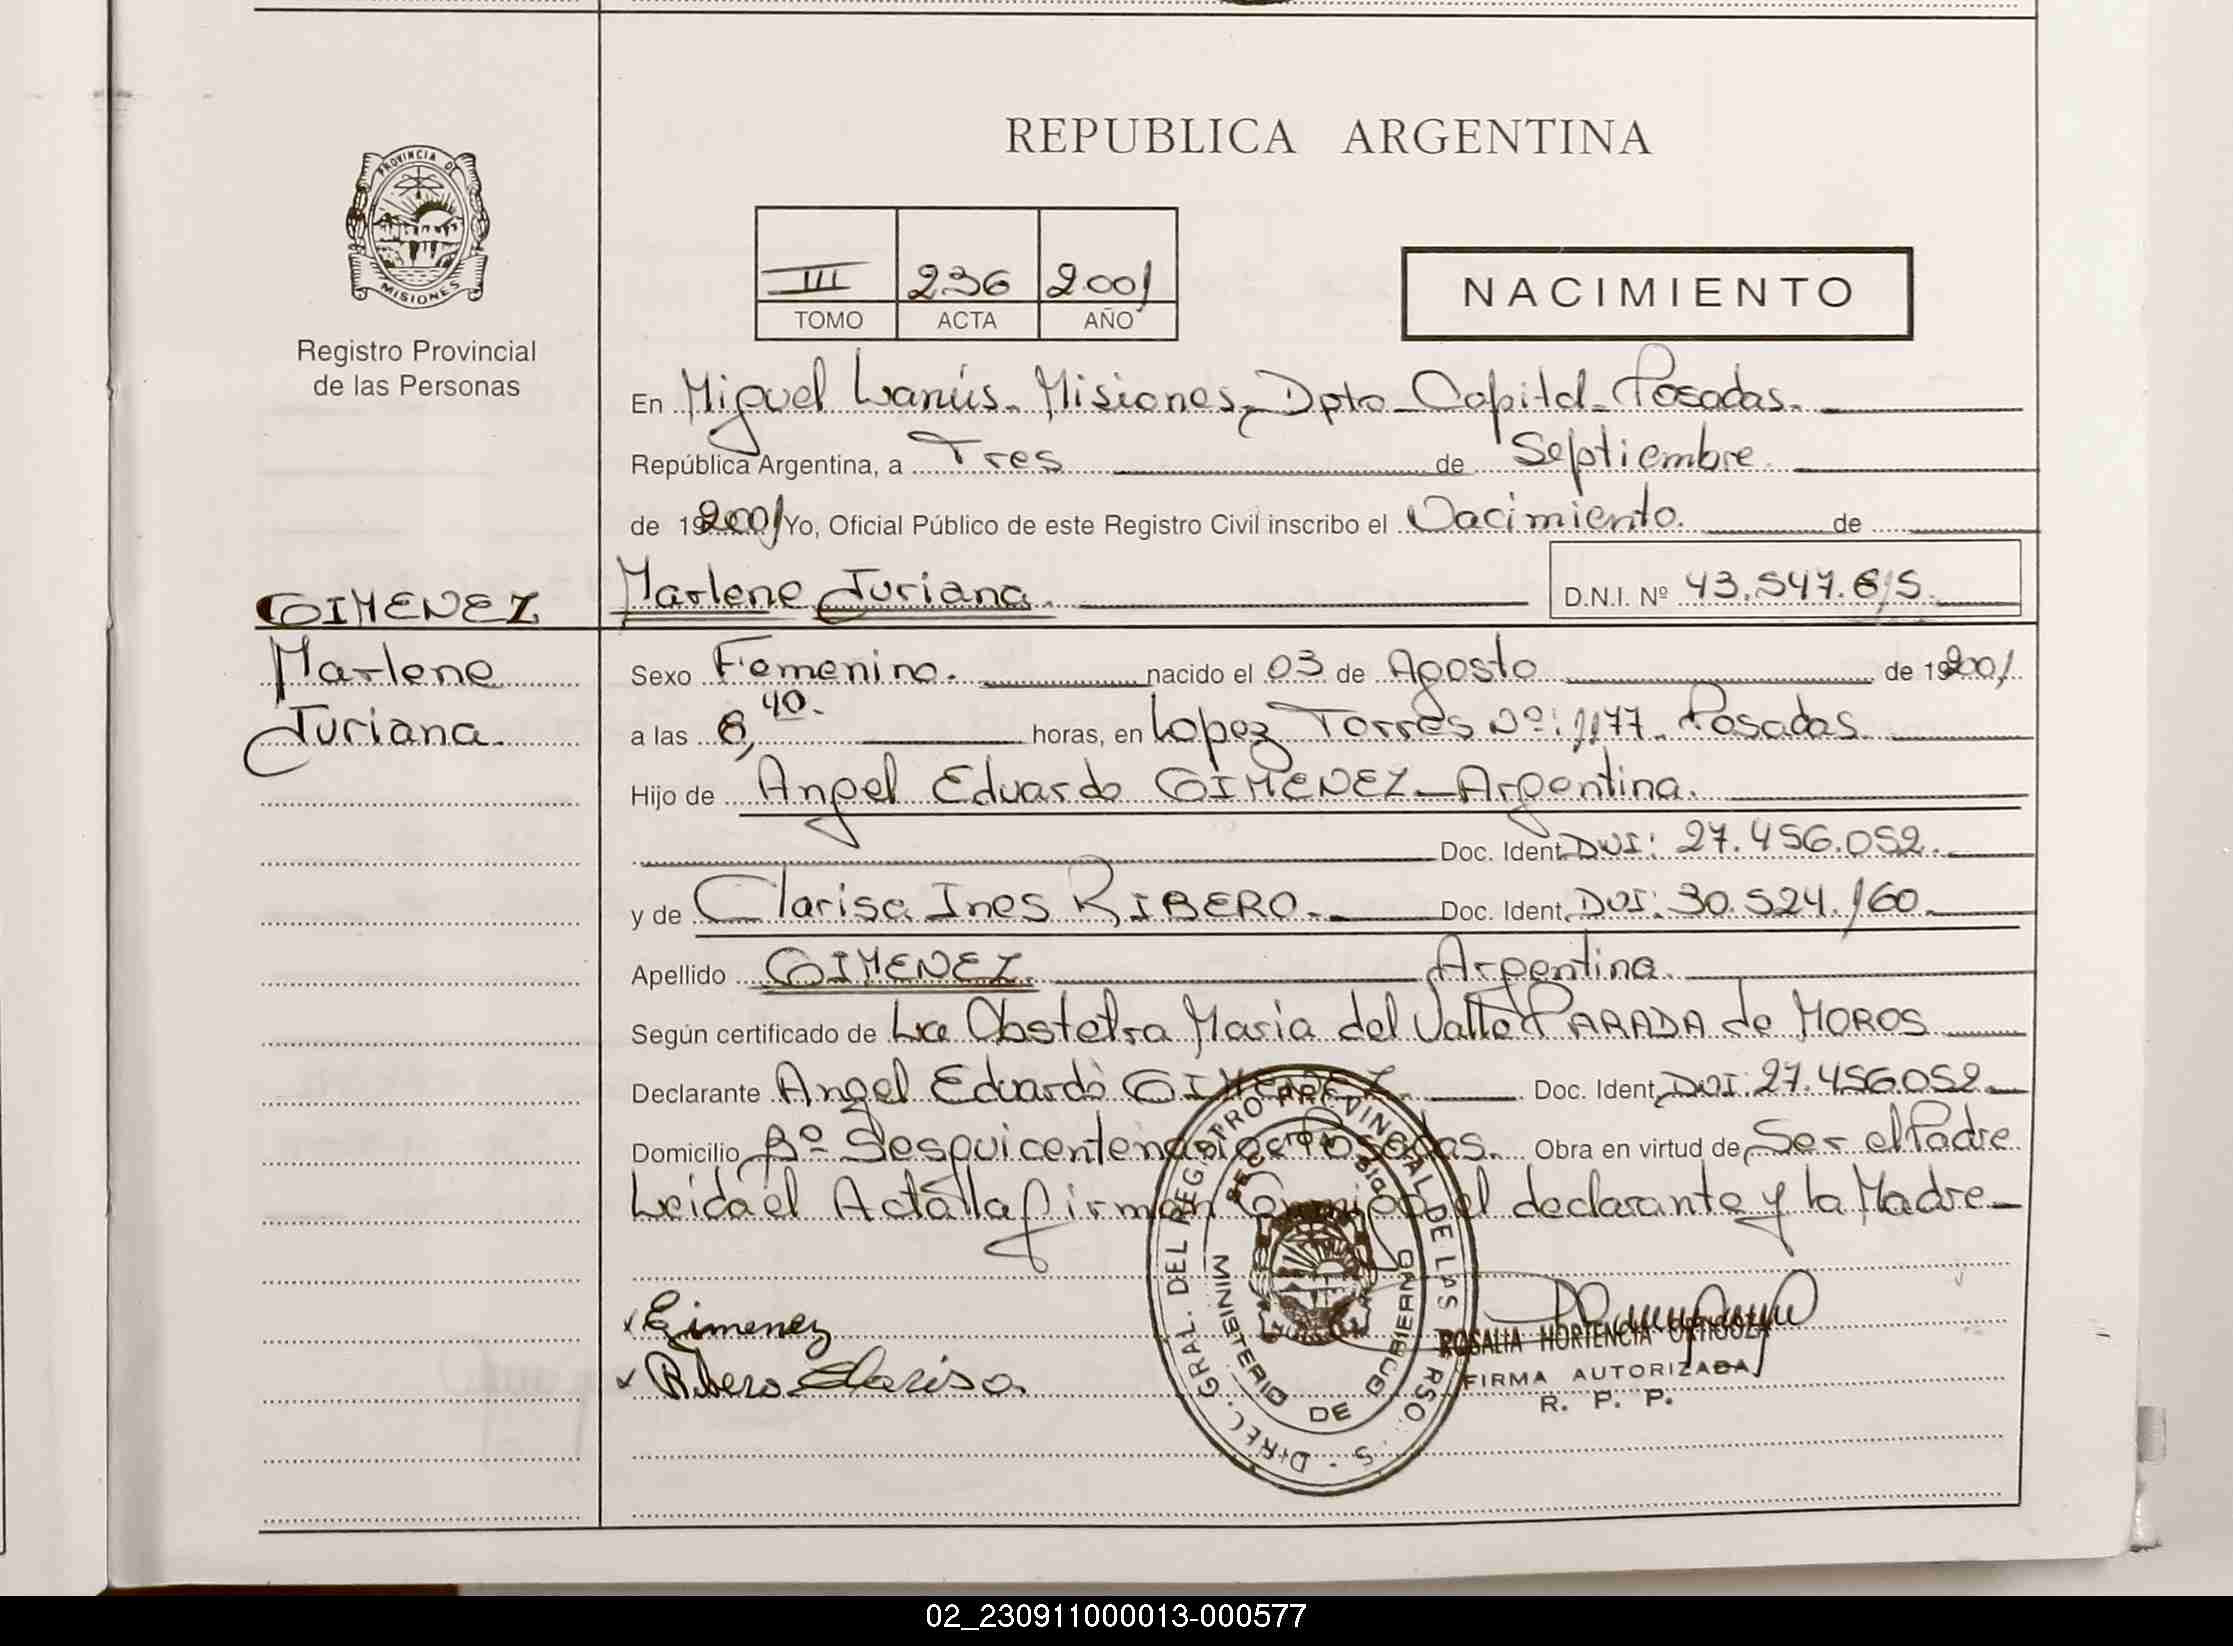 REPUBLICA ARGENTINA
PROVINCIA DE
MISIONES
Registro Provincial
de las Personas
III 236 2001
TOMO ACTA AÑO
NACIMIENTO
En Miguel Lanús. Misiones, Dpto Capital. Posadas.
República Argentina, a Tres de Septiembre.
de 19 2001 Yo, Oficial Público de este Registro Civil inscribo el Nacimiento. de
GIMENEZ
Marlene
Juriana.
Marlene Juriana. D.N.I. Nº 43.547.615.
Sexo Femenino. nacido el 03 de Agosto de 19 2001.
a las 8,40. horas, en Lopez Torres Nº: 1177. Posadas
Hijo de Angel Eduardo GIMENEZ Argentina.
Doc. Ident. DNI: 27.456.052.
y de Clarisa Ines RIBERO. Doc. Ident. DNI: 30.524.160
Apellido GIMENEZ. Argentina
Según certificado de La Obstetra Maria del Valle PARADA de MOROS
Declarante Angel Eduardo GIMENEZ. Doc. Ident. DNI: 27.456.052
Domicilio Bº Sesquicentenario Posadas. Obra en virtud de Ser el Padre
Leida el Acta la firman Conmigo el declarante y la Madre
DIREC. GRAL. DEL REGISTRO PROVINCIAL DE LAS PERSO. S.
MINISTERIO DE GOBIERNO
x Gimenez
x Ribero Clarisa.
ROSALIA HORTENCIA ORTIGOZA
FIRMA AUTORIZADA
R. P. P.
02_230911000013-000577